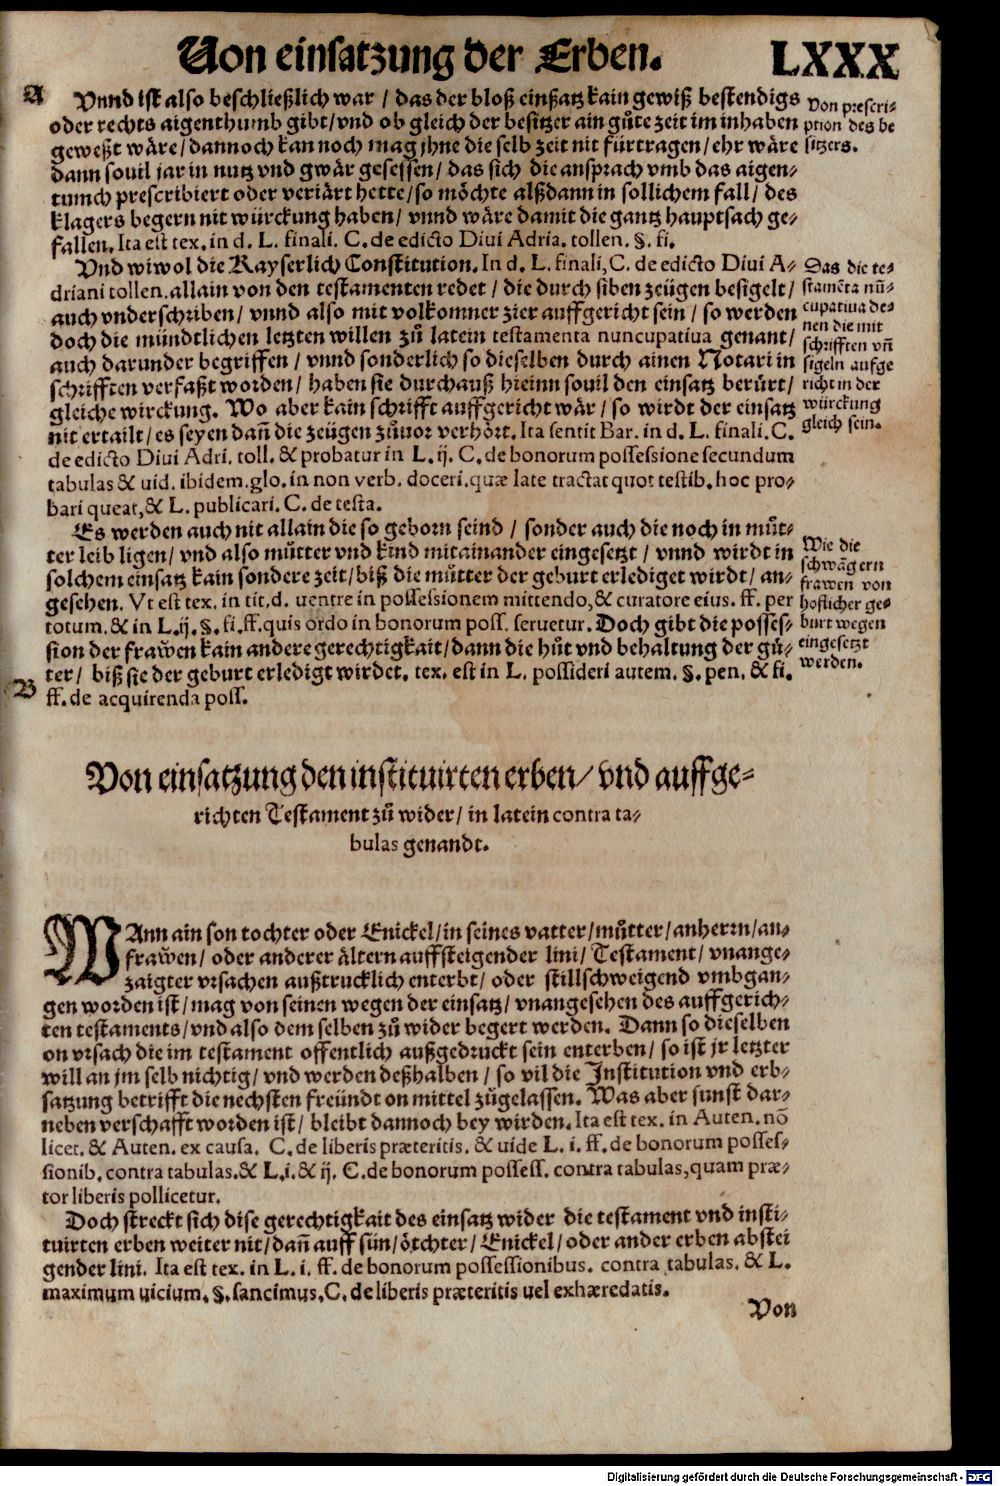 Von einsatzung der Erben. LXXX
A
Vnnd ist also beschließlich war / das der bloß einßatz kain gewiß bestendigs
oder rechts aigenthumb gibt / vnd ob gleich der besitzer ain gůte zeit im inhaben
geweßt wäre / dannoch kan noch mag jhne die selb zeit nit fürtragen / ehr wäre
dann souil jar in nutz vnd gwär gesessen / das sich die ansprach vmb das aigen⸗
tumch prescribiert oder veriärt hette / so möchte alßdann in sollichem fall / des
klagers begern nit würckung haben / vnnd wäre damit die gantz hauptsach ge⸗
fallen. Ita est tex. in d. L. finali. C. de edicto Diui Adria. tollen. §. fi.
Von prescri⸗
ption des be
sitzers.
Vnd wiwol die Kayserlich Constitution. In d. L. finali, C. de edicto Diui A⸗
driani tollen. allain von den testamenten redet / die durch siben zeügen besigelt /
auch vnderschriben / vnnd also mit volkomner zier auffgericht sein / so werden
doch die mündtlichen letzten willen zů latein testamenta nuncupatiua genant /
auch darunder begriffen / vnnd sonderlich so dieselben durch ainen Notari in
schrifften verfaßt worden / haben sie durchauß hieinn souil den einsatz berürt /
gleiche wirckung. Wo aber kain schrifft auffgericht wär / so wirdt der einsatz
nit ertailt / es seyen dañ die zeügen zůuor verhört. Ita sentit Bar. in d. L. finali. C.
de edicto Diui Adri. toll. & probatur in L. ij. C. de bonorum possessione secundum
tabulas & uid. ibidem. glo. in non verb. doceri. quæ late tractat quot testib. hoc pro⸗
bari queat, & L. publicari. C. de testa.
Das die te⸗
stamēta nū⸗
cupatiua de⸗
nen die mit
schrifften vñ
sigeln aufge
richt in der
würckung
gleich sein.
Es werden auch nit allain die so geborn seind / sonder auch die noch in můt⸗
ter leib ligen / vnd also můtter vnd kind mitainander eingesetzt / vnnd wirdt in
solchem einsatz kain sondere zeit / biß die můtter der geburt erlediget wirdt / an⸗
gesehen. Vt est tex. in tit. d. uentre in possessionem mittendo, & curatore eius. ff. per
totum. & in L. ij. §. fi. ff. quis ordo in bonorum poss. seruetur. Doch gibt die posses⸗
sion der frawen kain andere gerechtigkait / dann die hůt vnd behaltung der gü⸗
ter / biß sie der geburt erledigt wirdet. tex. est in L. possideri autem. §. pen. & fi.
B
ff. de acquirenda poss.
Wie die
schwāgern
frawen von
hoflicher ge⸗
burt wegen
eingesetzt
werden.
Von einsatzung den instituirten erben / vnd auffge⸗
richten Testament zů wider / in latein contra ta⸗
bulas genandt.
WAnn ain son tochter oder Enickel / in seines vatter / můtter / anherrn / an⸗
frawen / oder anderer ältern auffsteigender lini / Testament / vnange⸗
zaigter vrsachen außtrucklich enterbt / oder stillschweigend vmbgan⸗
gen worden ist / mag von seinen wegen der einsatz / vnangesehen des auffgerich⸗
ten testaments / vnd also dem selben zů wider begert werden. Dann so dieselben
on vrsach die im testament offentlich außgedruckt sein enterben / so ist jr letzter
will an jm selb nichtig / vnd werden deßhalben / so vil die Institution vnd erb⸗
satzung betrifft die nechsten freündt on mittel zůgelassen. Was aber sunst dar⸗
neben verschafft worden ist / bleibt dannoch bey wirden. Ita est tex. in Auten. nō
licet. & Auten. ex causa. C. de liberis præteritis. & uide L. i. ff. de bonorum posses⸗
sionib. contra tabulas. & L. i. & ij. C. de bonorum possess. contra tabulas, quam præ⸗
tor liberis pollicetur.
Doch streckt sich dise gerechtigkait des einsatz wider die testament vnd insti⸗
tuirten erben weiter nit / dañ auff sün / ötchter / Enickel / oder ander erben abstei
gender lini. Ita est tex. in L. i. ff. de bonorum possessionibus. contra tabulas. & L.
maximum uicium. §. sancimus, C. de liberis præteritis uel exhæredatis.
Von
Digitalisierung gefördert durch die Deutsche Forschungsgemeinschaft - DFG